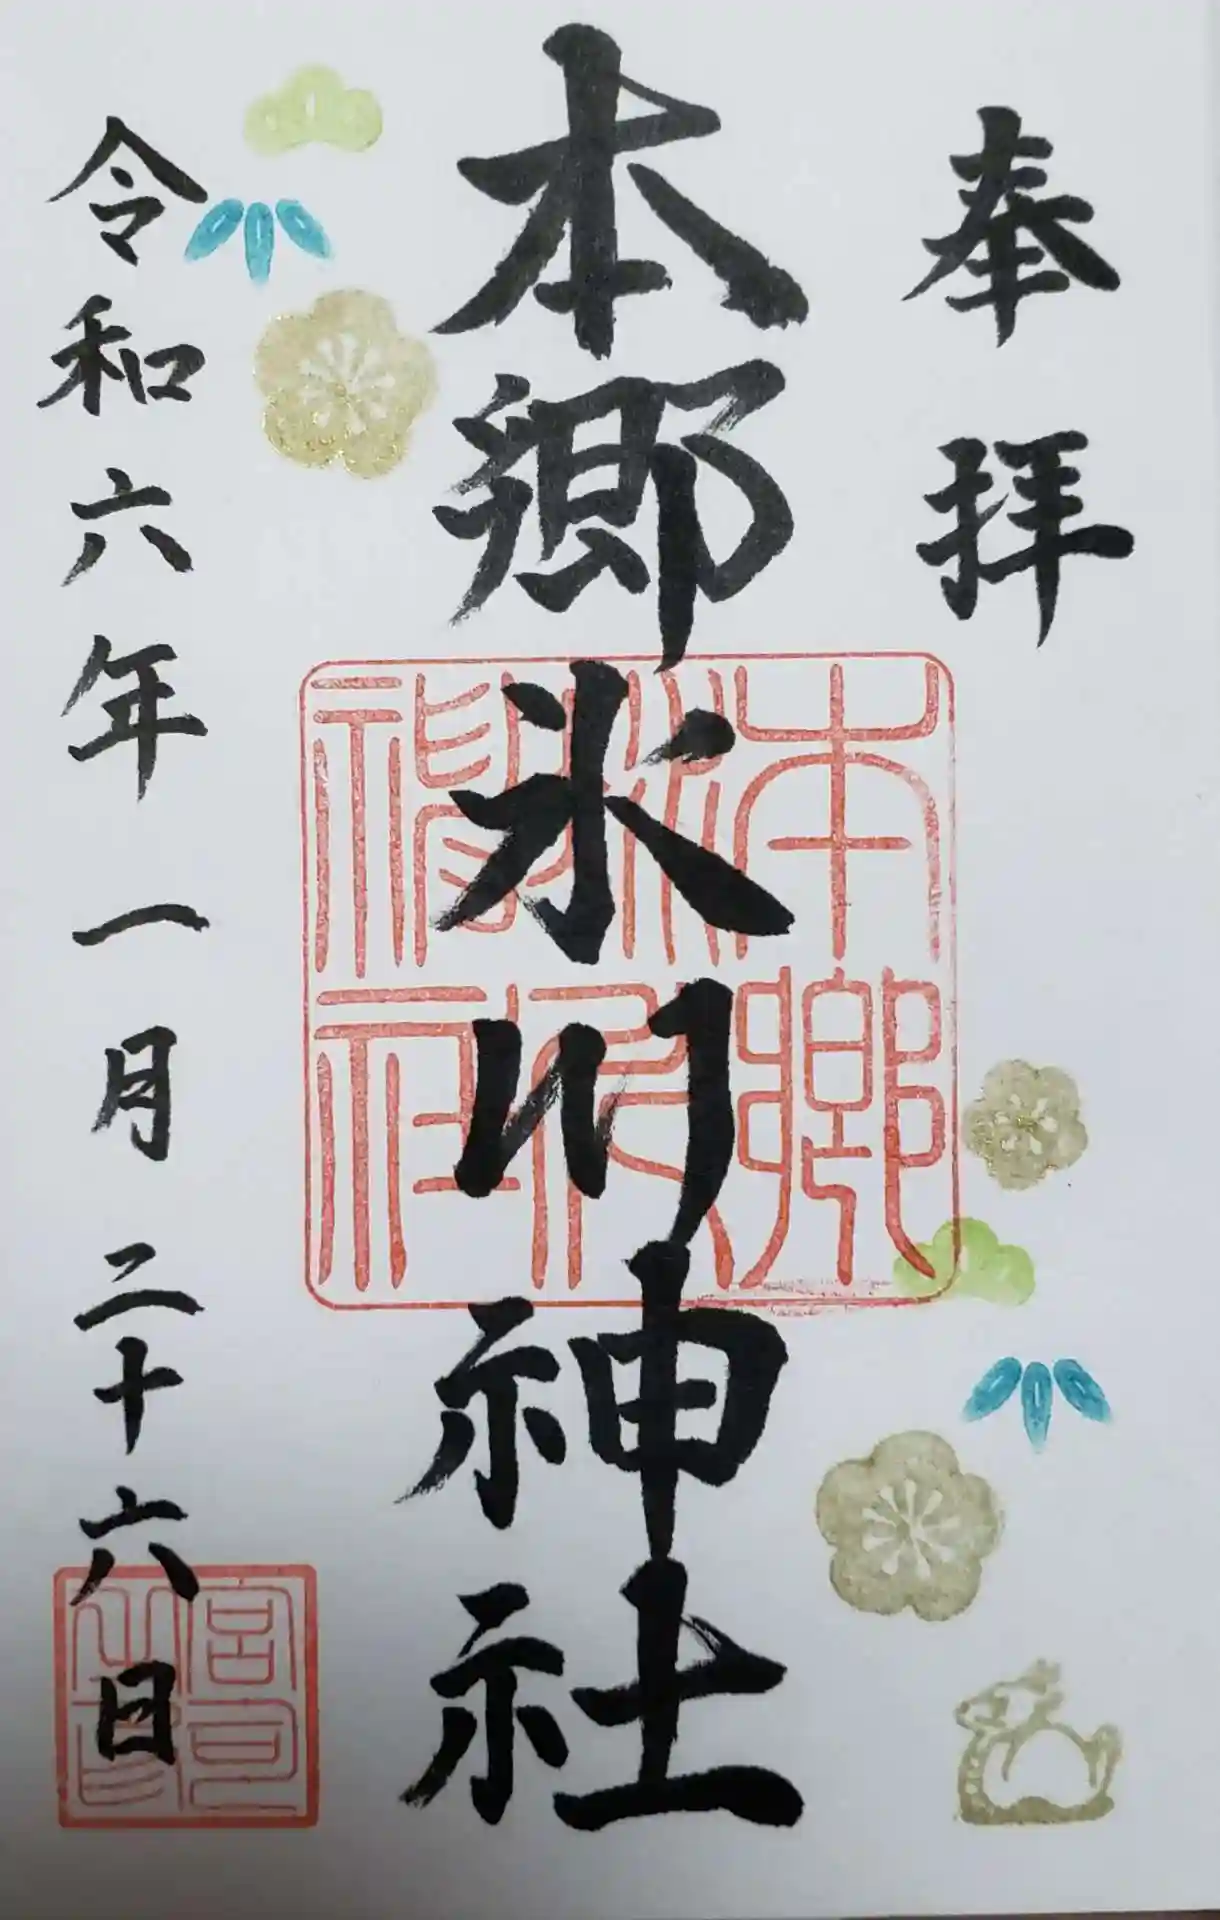 奉拝
本郷氷川神社
令和六年一月二十六日
本郷
氷川
神社
宮司
之印